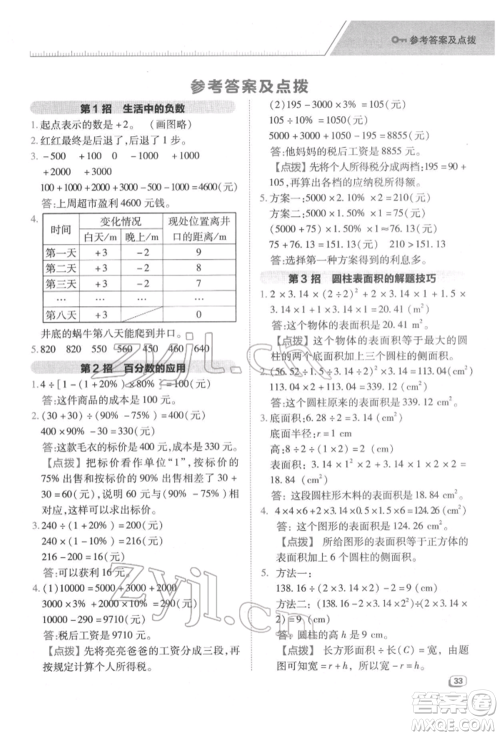 参考答案及点拨
参考答案及点拨
第1招 生活中的负数
1. 起点表示的数是+2。 (画图略)
2. 红红最后是后退了,后退了1步。
3. -500 +100 -1000
+2000 +3000
100+1000+2000+3000-500-1000=4600(元)
答:上周超市盈利4600元钱。
4.
时间 变化情况 现处位置离井口的距离/m
白天/m 晚上/m
第一天 +3 -2 9
第二天 +3 -2 8
第三天 +3 -2 7
… … …
第八天 +3 0
井底的蜗牛第八天能爬出井口。
5. 820 820 550 560 450 450 350
第2招 百分数的应用
1. 4÷[1-(1+20%)×80%]=100(元)
答:这件商品的成本是100元。
2. (30+30)÷(90%-75%)=400(元)
400×90%-30=330(元)
答:这款毛衣的标价是400元,成本是330元。
【点拨】把标价看作单位“1”,按标价的75%出售和按标价的90%出售相差了30+30=60(元),说明标价的(90%-75%)是60元,由此可求出标价。
3. 240÷(1+20%)=200(元)
240×(1-10%)=216(元)
216-200=16(元)
答:可以获利16元。
4. (1)10000=5000+3000+2000
3000×3%+2000×10%=290(元)
10000-290=9710(元)
答:税后工资是9710元。
【点拨】先将亮亮爸爸的工资分成三段,再按规定计算个人所得税。
(2)(195-3000×3%)=105(元)
105÷10%=1050(元)
5000+3000+1050-195=8855(元)
答:他妈妈的税后工资是8855元。
【点拨】先将个人所得税分成两档:195=90+105,再计算各档的应纳税所得额。
5. 方案一:5000×2.10%×2=210(元)
方案二:5000×1.50%=75(元)
(5000+75)×1.50%≈76.13(元)
75+76.13=151.13(元)
210>151.13
答:选择方案一得到的利息多一些。
第3招 圆柱表面积的解题技巧
答:这个物体的表面积是20.41 m²。
113.04×2+113.04=339.12(cm²)
答:这个圆柱的表面积是339.12 cm²。
3. 底面积:6.28÷2=3.14(cm²)
底面半径:r=1 cm
高:8÷2÷2=2(cm)
18.84(cm²)
答:这根圆柱形木料的表面积是18.84 cm²。
4. 4×4×6+2×3.14×1.5×3=124.26(cm²)
答:这个图形的表面积是124.26 cm²。
【点拨】所给图形的表面积等于正方体的表面积加上一个圆柱的侧面积。
5. 方法一:
138.16÷(2×3.14×2)-2=9(cm)
方法二:
(138.16-2×3.14×2²)÷(2×3.14×2)=9(cm)
答:圆柱的高h是9 cm。
33
zyjl.cn
zyjl.cn
答案圈
MXQE.COM